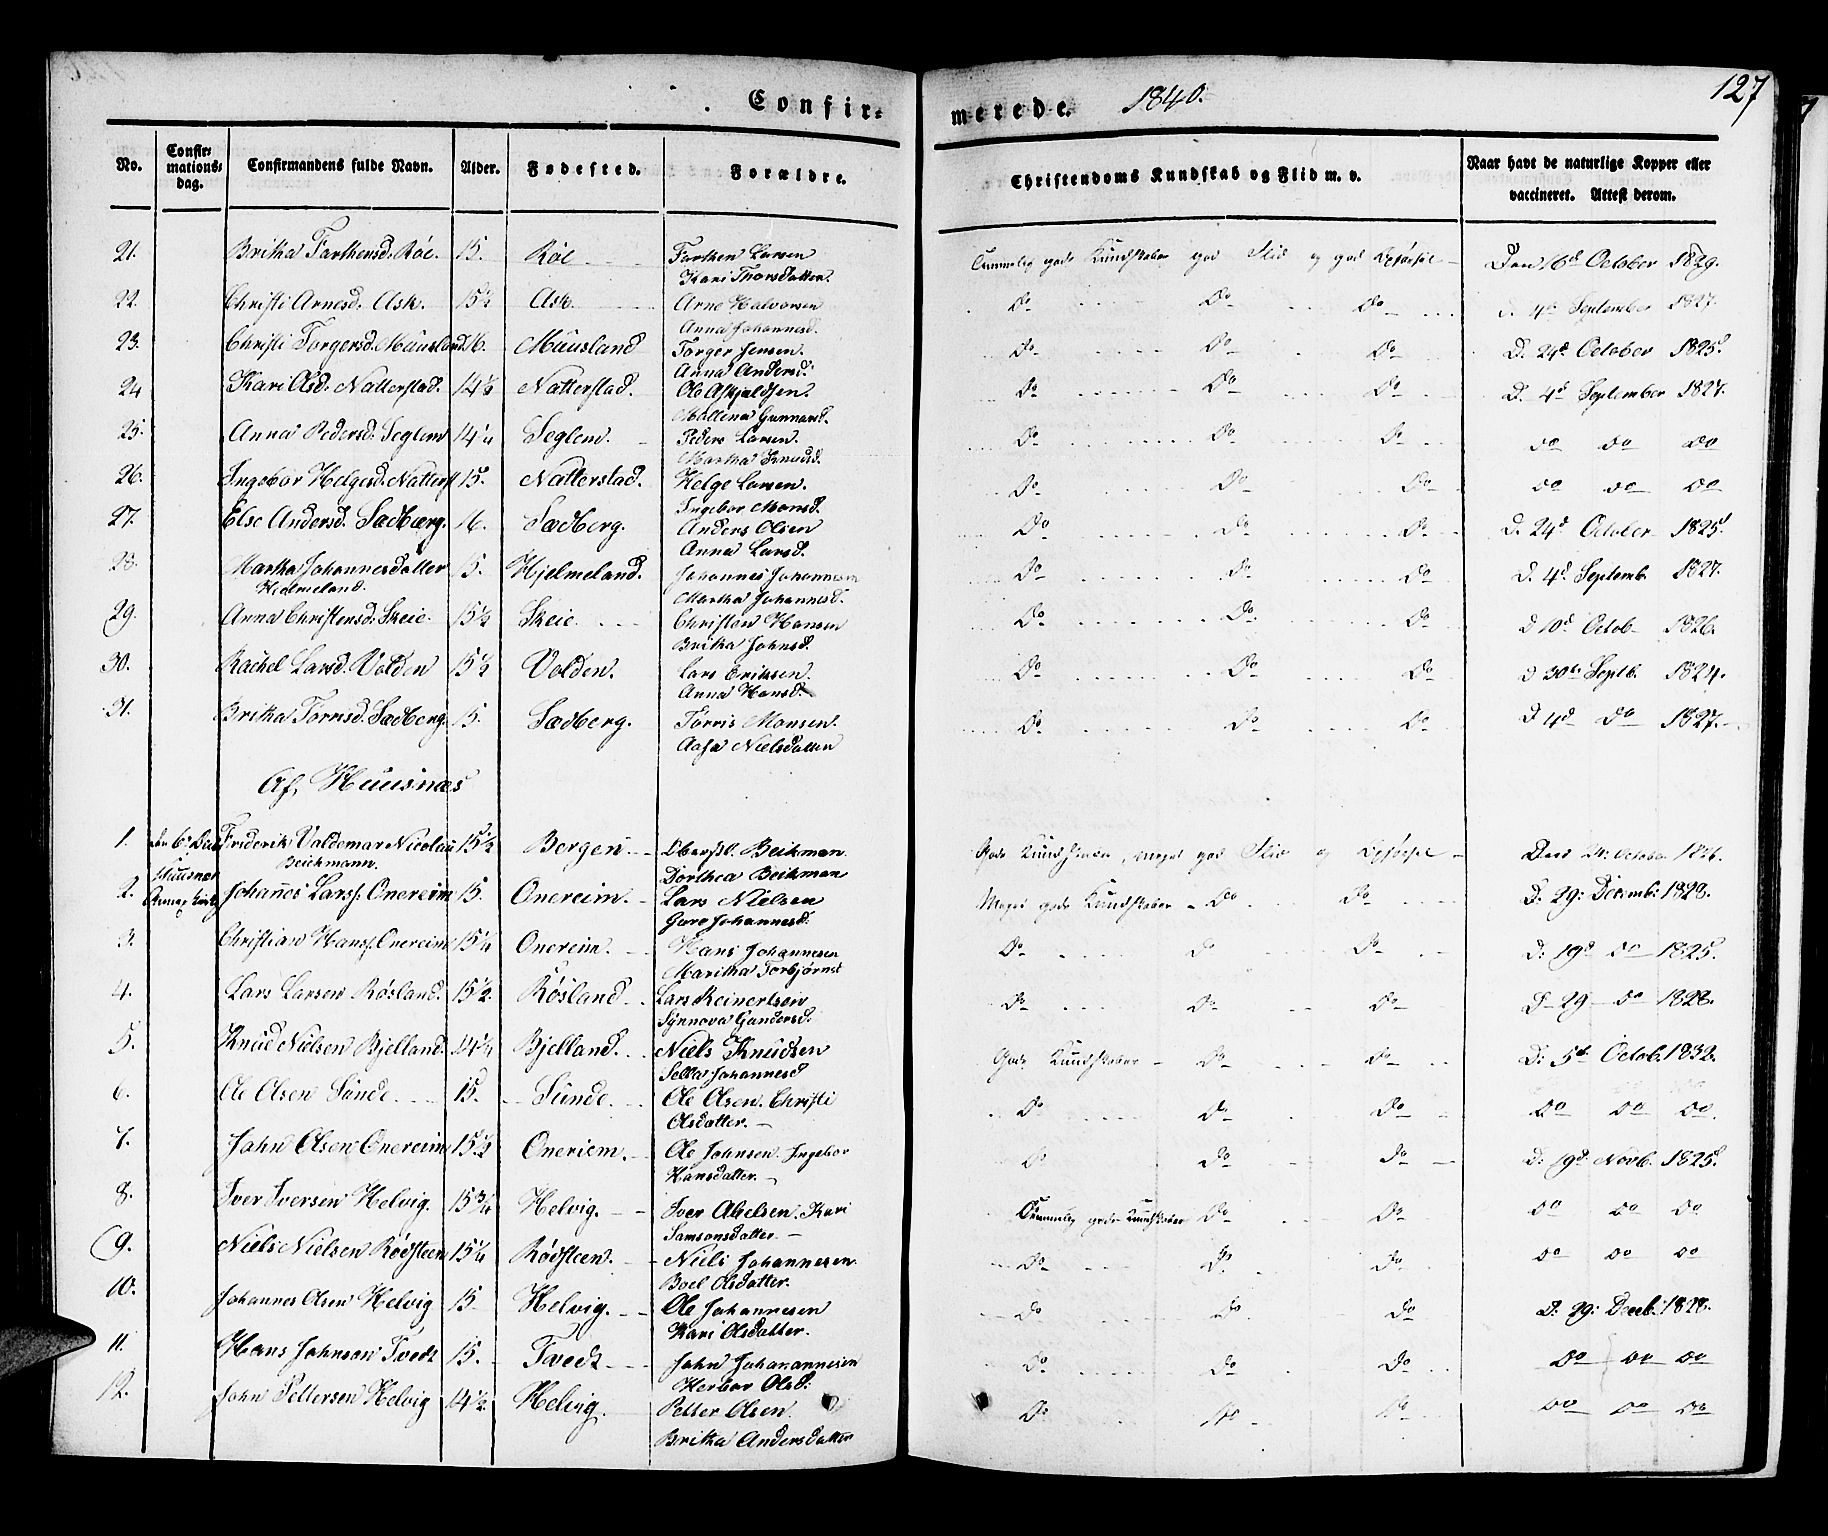 Confir= merede. 1840. 127
No. Confirmationsdag. Confirmandens fulde Navn. Alder. Fødested. Forældre. Christendoms Kundskab og Flid m. v. Naar havt de naturlige Kopper eller vaccineret. Attest derom.
21. Britha Farthensd. Röe. 15. Röe Farthen Larsen Temmelig gode Kundskaber god Flid og god Opförsel Den 6d October 1829.
Kari Thorsdatter.
22. Christi Arnesd. Ask. 15½ Ask. Arne Halvorsen Do Do Do D. 4d September 1827.
Anna Johannesd.
23. Christi Torgersd. Muusland 16. Muusland Torger Jensen. Do Do Do D. 24d October 1825.
Anna Andersd.
24 Kari Olsd. Natterstad. 14½ Natterstad. Ole Askjeldsen. Do Do Do D. 4d September 1827.
Mallena Gunnarsd.
25. Anna Pedersd. Seglem 14¼ Seglem. Peder Larsen. Do Do Do do do do
Martha Knudsd.
26. Ingebor Helgesd. Natterst 15. Natterstad. Helge Larsen. Do Do Do do do do
Ingebor Monsd.
27. Else Andersd. Sædberg. 16. Sædberg. Anders Olsen Do Do Do D. 24d October 1825.
Anna Larsd.
28. Martha Johannesdatter 15. Hjelmeland. Johannes Johannesen Do Do Do D. 4d Septemb. 1827.
Hjelmeland. Martha Johannesd.
29. Anna Christensd. Skeie. 15½ Skeie. Christen Hansen Do Do Do D 10d Octob 1826.
Britha Johnsd.
30. Rachel Larsd. Volden 15½ Volden. Lars Eriksen. Do Do Do D 30te Septb. 1824.
Anna Hansd.
31. Britha Torrisd. Sædberg. 15. Sædberg. Torris Monsen. Do Do Do D 4d do 1827.
Aasa Nielsdatter
Af, Huusnæs
1. den 6te Frederik Valdemar Nicolai 15½ Bergen. Oberstl. Beikman. Gode Kundskaber, meget god Flid og Opförsel Den 24: October 1826.
Huusnæs Beichmann. Dorthea Beikman
2. Johannes Larss. Onereim 15. Onereim. Lars Nielsen Meget gode Kundskaber Do Do D. 29: Decemb: 1828.
Guro Johannesd.
3. Christian Hanss. Onereim 15¼ Onereim. Hans Johannesen Do do Do D: 19d do 1825.
Maritha Torbjørnsd
4. Lars Larsen Rösland. 15½. Rösland. Lars Reinertsen Do Do Do D 29 do 1828.
Synnova Gundersd.
5. Knud Nielsen Bjelland. 14¾ Bjelland. Niels Knudsen Gode Kundskaber Do do D: 5d Octob. 1832.
Sella Johannesd
6. Ole Olsen Sunde 15. Sunde. Ole Olsen. Christi Do Do Do do do do.
Olsdatter.
7. John Olsen Onereim 15½ Oneriem. Ole Johnsen. Ingebor Do Do Do D: 19d Novb. 1825.
Hansdatter.
8. Iver Iversen Helvig. 15¾ Helvig. Iver Abelsen. Kari Temmelig gode Kundskaber Do Do do do do
Samsonsdatter.
9. Niels Nielsen Rödsteen 15¼ Rödsteen. Niels Johannesen Do Do Do do do do
Boel Olsdatter.
10. Johannes Olsen Helvig 15 Helvig. Ole Johannesen do do do D: 29: Decb: 1828.
Kari Olsdatter.
11. Hans Johnson Tvedt 15. Tvedt John Johanannesen Do do Do do do do
Herbor Olsd:
12. John Pettersen Helvig 14½. Helvig. Petter Olsen. Do Do Do do do do
Britha Andersdatter